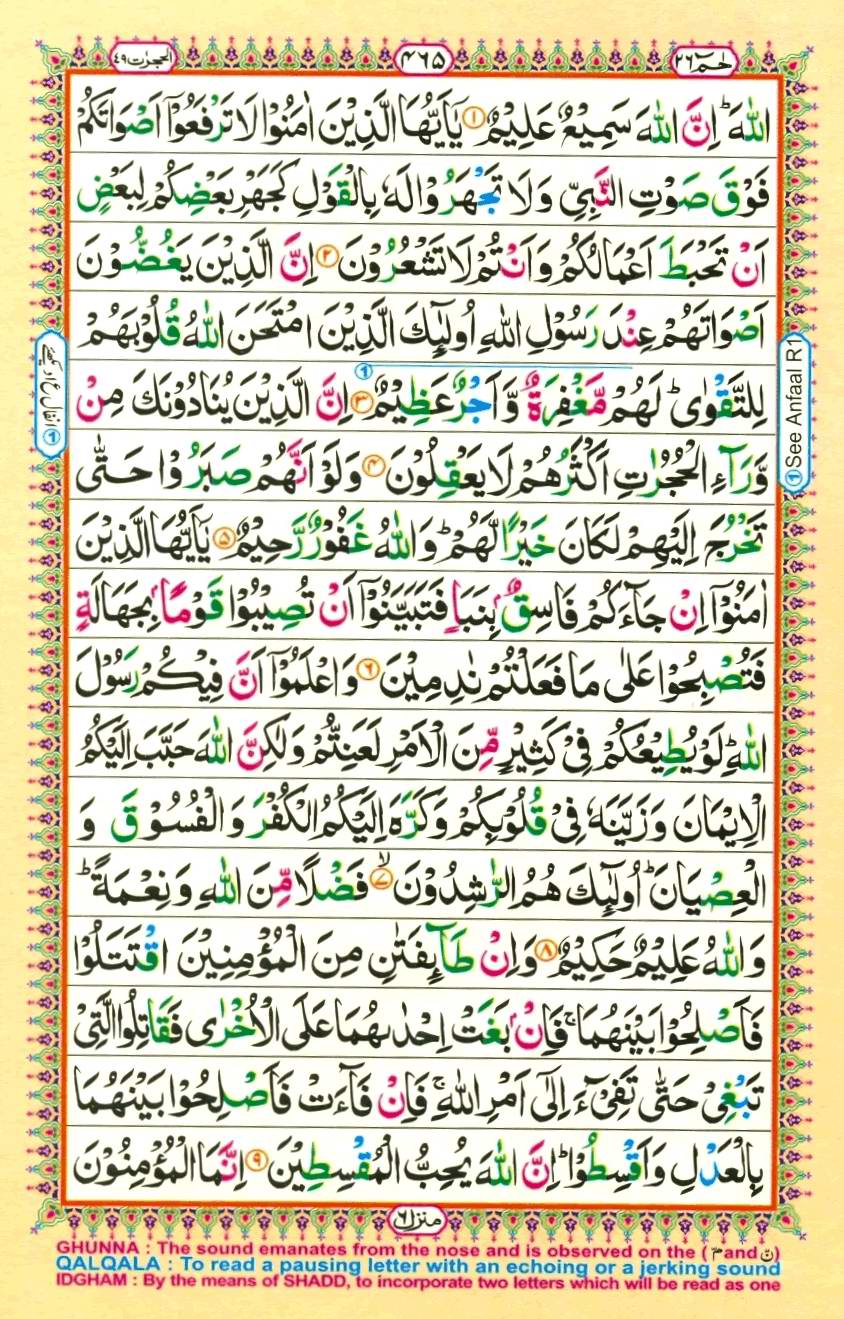 الحجرٰت ٤٩
٤٦٥
حٰمٓ ٢٦
اللّٰهَ ؕ اِنَّ اللّٰهَ سَمِيْعٌ عَلِيْمٌ ۝١ يٰۤاَيُّهَا الَّذِيْنَ اٰمَنُوْا لَا تَرْفَعُوْۤا اَصْوَاتَكُمْ
فَوْقَ صَوْتِ النَّبِيِّ وَلَا تَجْهَرُوْا لَهٗ بِالْقَوْلِ كَجَهْرِ بَعْضِكُمْ لِبَعْضٍ
اَنْ تَحْبَطَ اَعْمَالُكُمْ وَاَنْتُمْ لَا تَشْعُرُوْنَ ۝٢ اِنَّ الَّذِيْنَ يَغُضُّوْنَ
اَصْوَاتَهُمْ عِنْدَ رَسُوْلِ اللّٰهِ اُولٰٓئِكَ الَّذِيْنَ امْتَحَنَ اللّٰهُ قُلُوْبَهُمْ
لِلتَّقْوٰى ؕ لَهُمْ مَّغْفِرَةٌ وَّاَجْرٌ عَظِيْمٌ ۝٣ اِنَّ الَّذِيْنَ يُنَادُوْنَكَ مِنْ
وَّرَآءِ الْحُجُرٰتِ اَكْثَرُهُمْ لَا يَعْقِلُوْنَ ۝٤ وَلَوْ اَنَّهُمْ صَبَرُوْا حَتّٰى
تَخْرُجَ اِلَيْهِمْ لَكَانَ خَيْرًا لَّهُمْ ؕ وَاللّٰهُ غَفُوْرٌ رَّحِيْمٌ ۝٥ يٰۤاَيُّهَا الَّذِيْنَ
اٰمَنُوْۤا اِنْ جَآءَكُمْ فَاسِقٌۢ بِنَبَاٍ فَتَبَيَّنُوْۤا اَنْ تُصِيْبُوْا قَوْمًاۢ بِجَهَالَةٍ
فَتُصْبِحُوْا عَلٰى مَا فَعَلْتُمْ نٰدِمِيْنَ ۝٦ وَاعْلَمُوْۤا اَنَّ فِيْكُمْ رَسُوْلَ
اللّٰهِ ؕ لَوْ يُطِيْعُكُمْ فِيْ كَثِيْرٍ مِّنَ الْاَمْرِ لَعَنِتُّمْ وَلٰكِنَّ اللّٰهَ حَبَّبَ اِلَيْكُمُ
الْاِيْمَانَ وَزَيَّنَهٗ فِيْ قُلُوْبِكُمْ وَكَرَّهَ اِلَيْكُمُ الْكُفْرَ وَالْفُسُوْقَ وَ
الْعِصْيَانَ ؕ اُولٰٓئِكَ هُمُ الرّٰشِدُوْنَ ۝٧ۙ فَضْلًا مِّنَ اللّٰهِ وَنِعْمَةً ؕ
وَاللّٰهُ عَلِيْمٌ حَكِيْمٌ ۝٨ وَاِنْ طَآئِفَتٰنِ مِنَ الْمُؤْمِنِيْنَ اقْتَتَلُوْا
فَاَصْلِحُوْا بَيْنَهُمَا ۚ فَاِنْۢ بَغَتْ اِحْدٰىهُمَا عَلَى الْاُخْرٰى فَقَاتِلُوا الَّتِيْ
تَبْغِيْ حَتّٰى تَفِيْٓءَ اِلٰۤى اَمْرِ اللّٰهِ ۚ فَاِنْ فَآءَتْ فَاَصْلِحُوْا بَيْنَهُمَا
بِالْعَدْلِ وَاَقْسِطُوْا ؕ اِنَّ اللّٰهَ يُحِبُّ الْمُقْسِطِيْنَ ۝٩ اِنَّمَا الْمُؤْمِنُوْنَ
① See Anfaal R1
منزل ٦
GHUNNA : The sound emanates from the nose and is observed on the ( مّ and نّ )
QALQALA : To read a pausing letter with an echoing or a jerking sound
IDGHAM : By the means of SHADD, to incorporate two letters which will be read as one